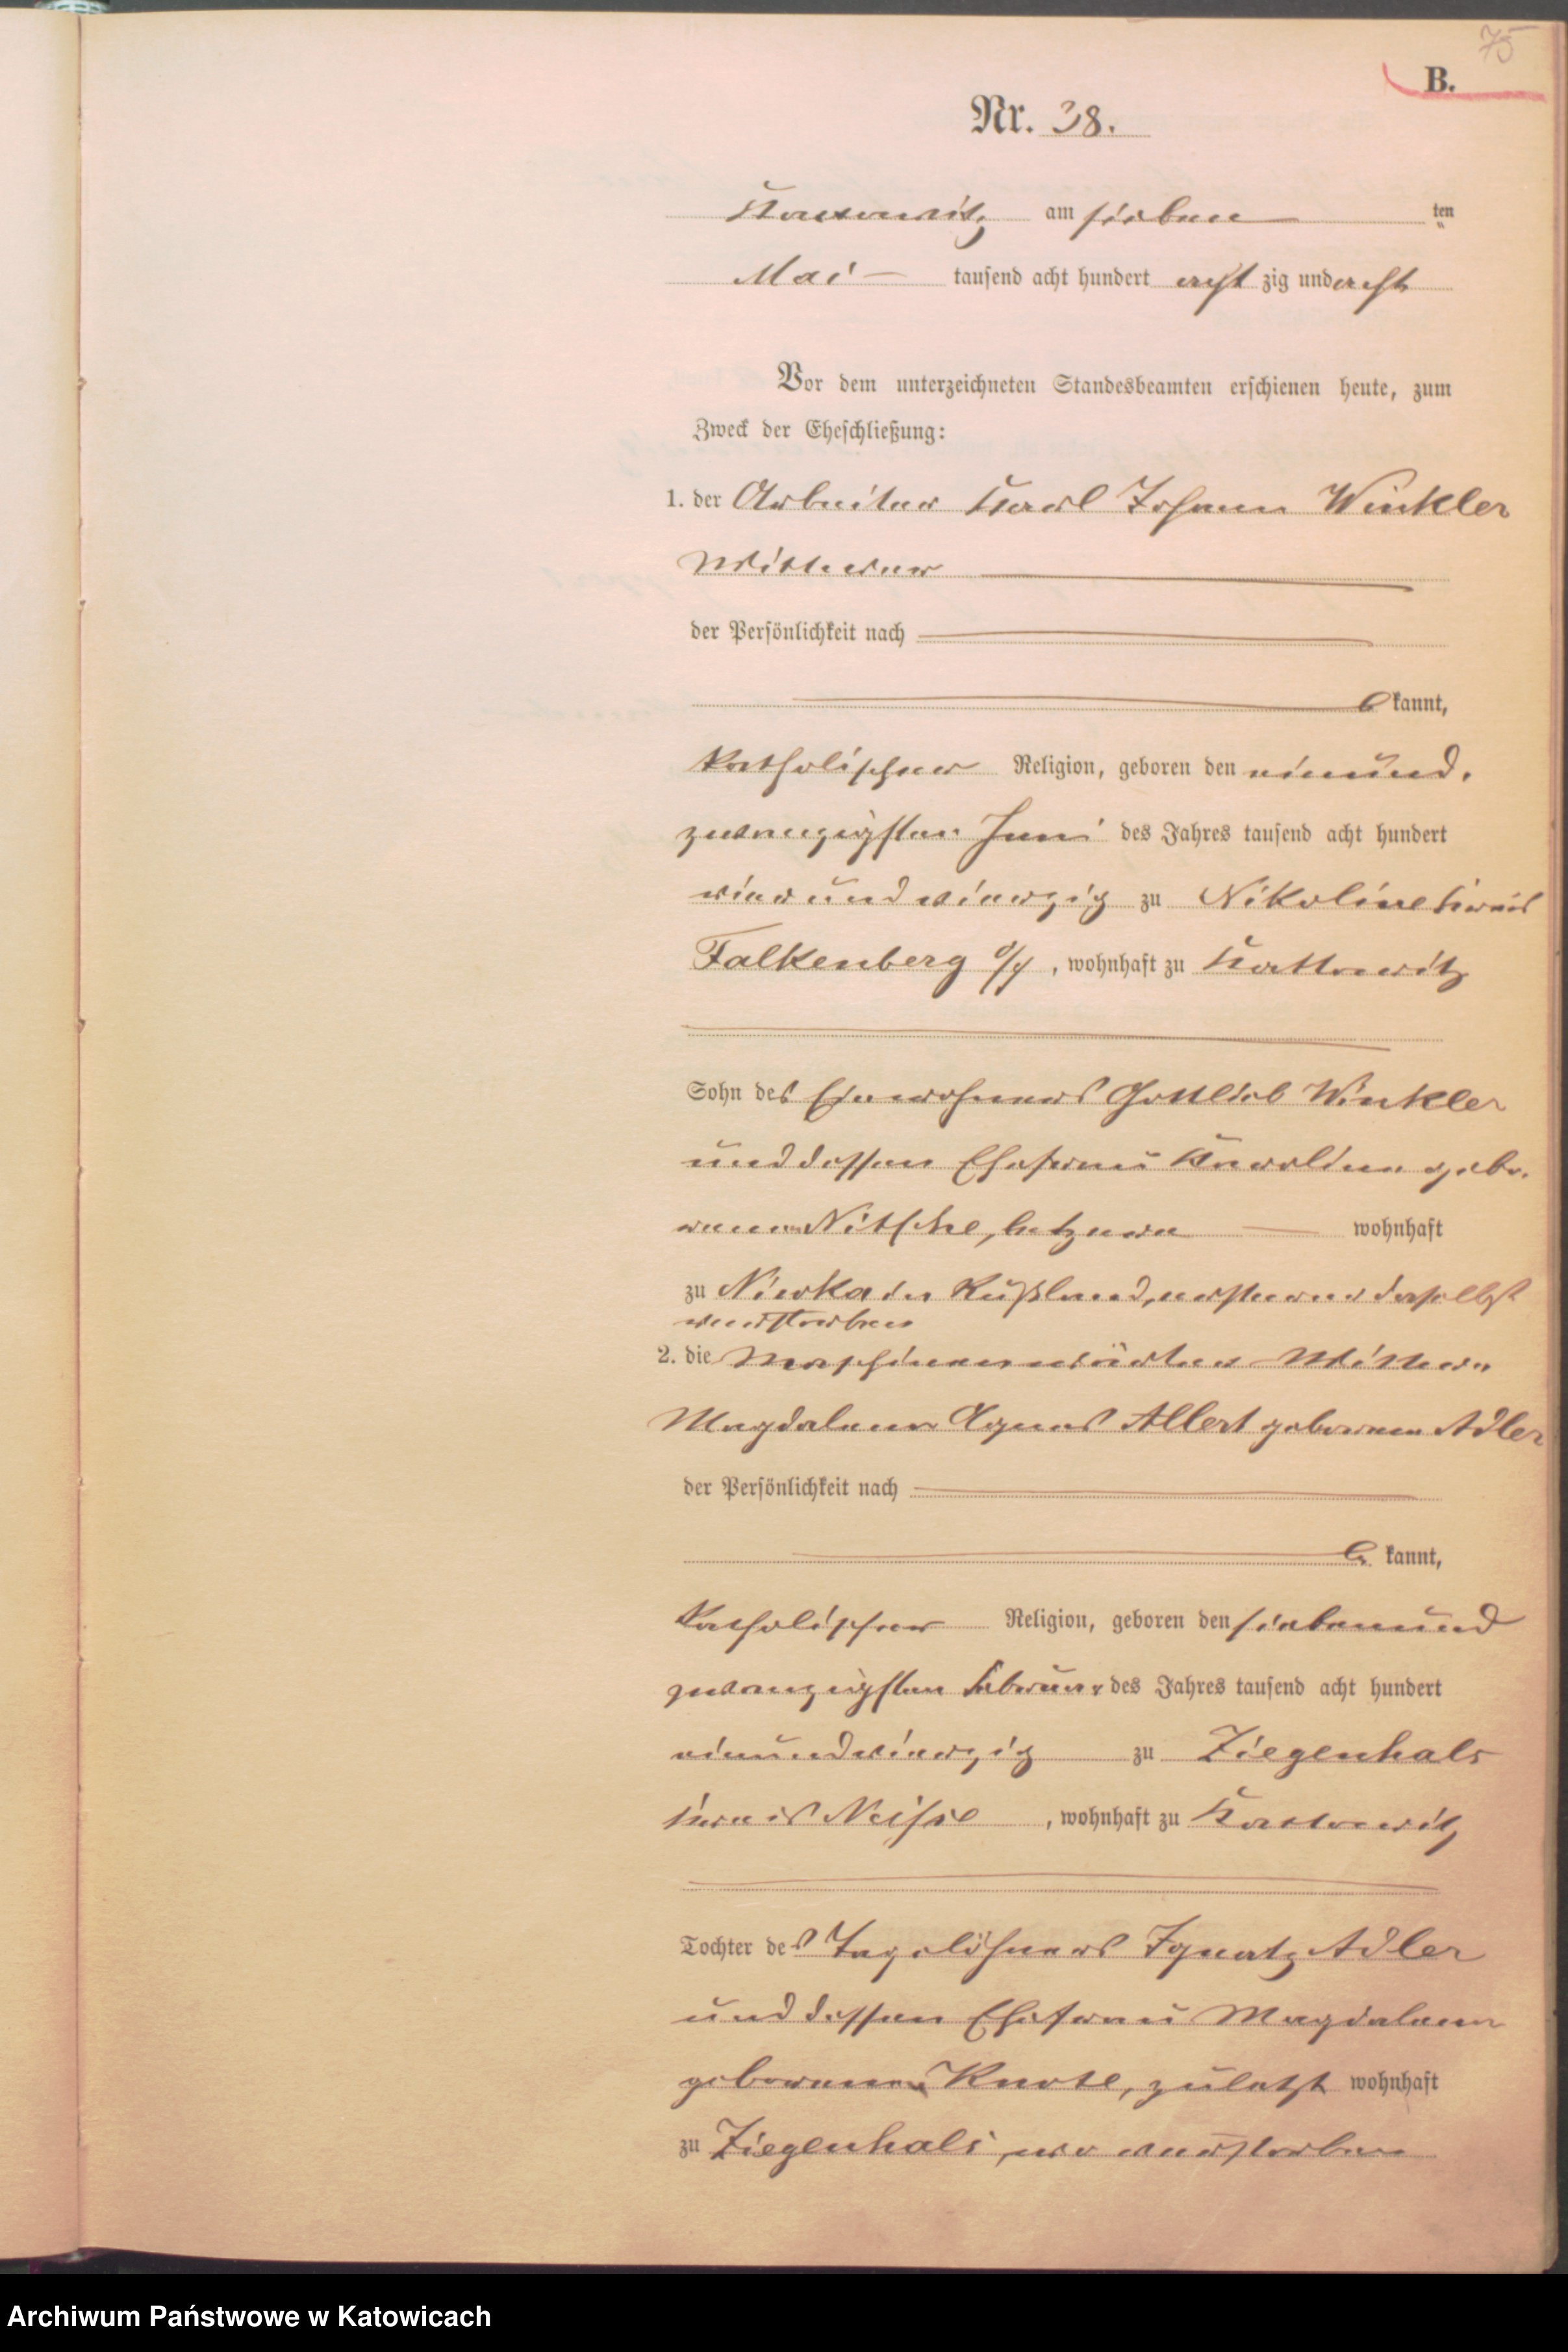 75
B.
Nr. 38.
Kattowitz am sieben ten
Mai tausend acht hundert acht zig und acht
Vor dem unterzeichneten Standesbeamten erschienen heute, zum
Zweck der Eheschließung:
1. der Arbeiter Karl Johann Winkler
Wittwer
der Persönlichkeit nach
be kannt,
katholischer Religion, geboren den einund-
zwanzigsten Juni des Jahres tausend acht hundert
vierundvierzig zu Nikoline Kreis
Falkenberg O/S, wohnhaft zu Kattowitz
Sohn des Einwohners Gottlieb Winkler
und dessen Ehefrau Karoline gebo-
renen Nitsche, letztere wohnhaft
zu Niwka in Rußland, ersterer daselbst
verstorben
2. die Maschinenwärter-Wittwe
Magdalena Agnes Allert geborene Adler
der Persönlichkeit nach
be kannt,
katholischer Religion, geboren den siebenund
zwanzigsten Februar des Jahres tausend acht hundert
einundvierzig zu Ziegenhals
Kreis Neisse, wohnhaft zu Kattowitz
Tochter des Tagelöhners Ignatz Adler
und dessen Ehefrau Magdalena
geborenen Knote, zuletzt wohnhaft
zu Ziegenhals, wo verstorben
Archiwum Państwowe w Katowicach